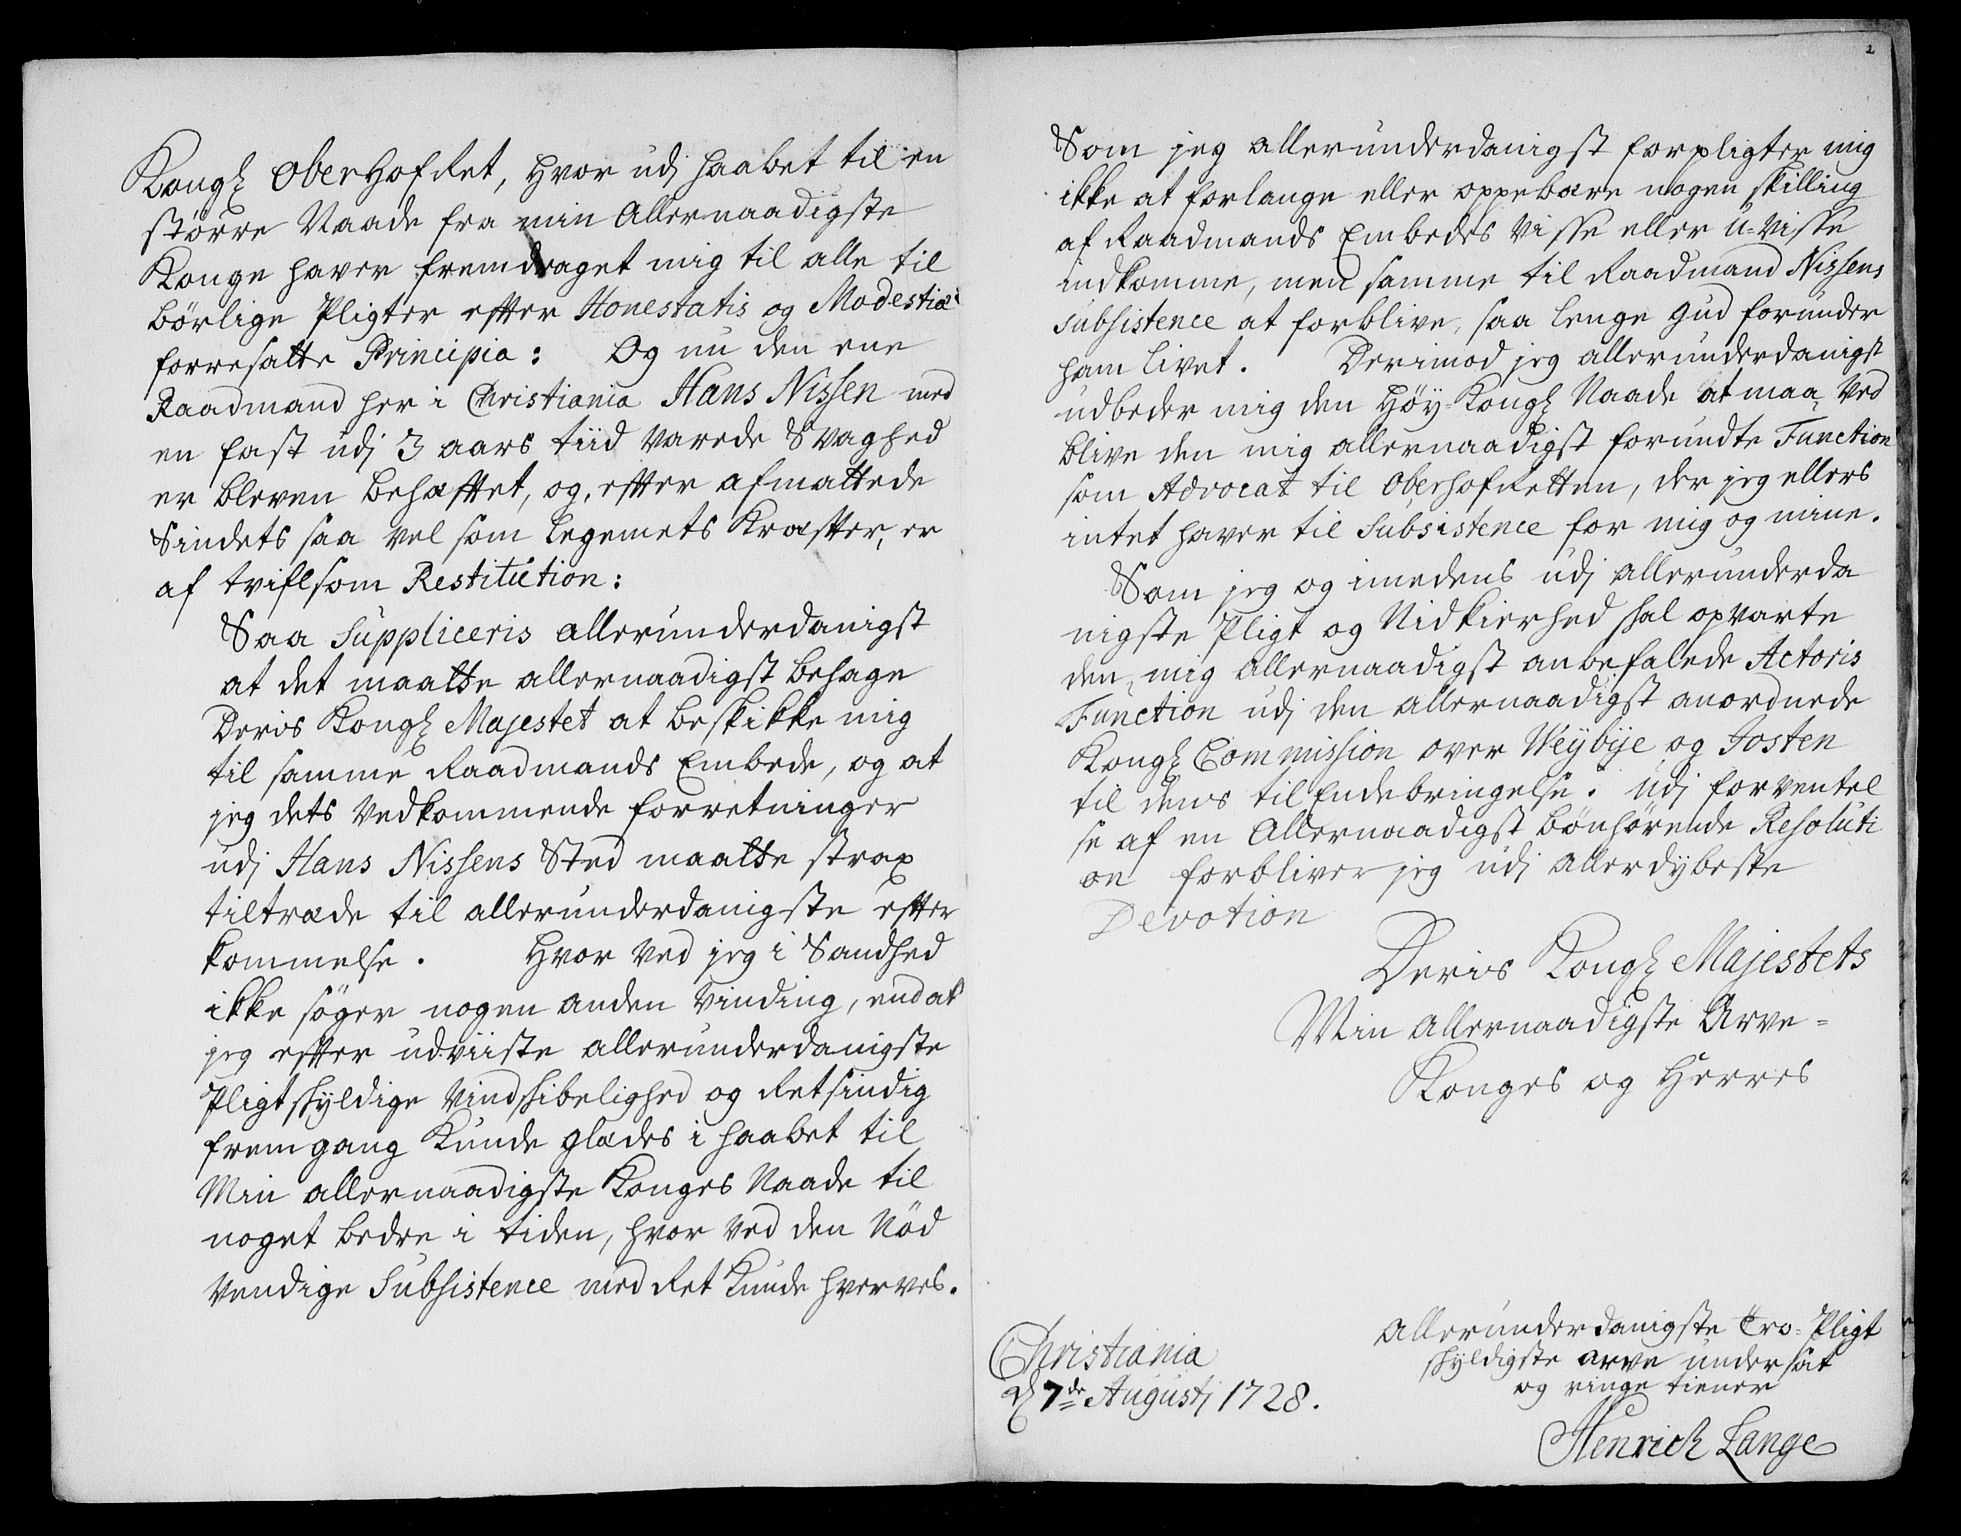 Kongl OberHofRet, hvor udj haabet til en
större Naade fra min Allernaadigste
Konge haver fremdraget mig til alle til
börlige Pligter effter Honestatis og Modestiæ
forresatte Principia: Og nu den ene
Raadmand her i Christiania Hans Nissen med
en fast udj 3 aars tiid varede Svaghed
er bleven behæfftet, og, effter afmattede
Sindets saa vel som Legemets Kræffter, er
af tviflsom Restitution:
Saa Suppliceris allerunderdanigst
at det maatte allernaadigst behage
Deris Kongl Majestet at beskikke mig
til samme Raadmands Embede, og at
jeg dets vedkommende forretninger
udj Hans Nissens Sted maatte strax
tiltræde til allerunderdanigste effter
kommelse. Hvor ved jeg i Sandhed
ikke söger nogen anden Vinding, end at
jeg effter udviiste allerunderdanigste
Pligtskyldige Vindskibelighed og Retsindig
fremgang Kunde glædes i haabet til
Min allernaadigste Konges Naade til
noget bedre i tiden, hvor ved den Nöd
vendige Subsistence med Ret Kunde hverves.
2
Som jeg allerunderdanigst forpligter mig
ikke at forlange eller oppebære nogen skilling
af Raadmands Embedes Visse eller U-visse
indkomme, men samme til Raadmand Nissens
Subsistence at forblive, saa lenge Gud forunder
ham livet. Derimod jeg allerunderdanigst
udbeder mig den Höy-Kongl Naade at maa ved
blive den mig allernaadigst forundte Function
som Advocat til OberhofRetten, der jeg ellers
intet haver til Subsistence for mig og mine.
Som jeg og imedens udj allerunderda
nigste Pligt og Nidkierhed skal opvarte
den, mig allernaadigst anbefalede Actoris
Function udj den allernaadigst anordnede
Kongl Commission over Weybye og Josten
til dens tilEndebringelse. Udj forventel
se af en Allernaadigst bönhörende Resoluti
on forbliver jeg udj allerdybeste
Devotion
Deris Kongl Majestets
Min allernaadigste Arve=
Konges og Herres
Christiania
d 7de Augustj 1728.
Allerunderdanigste Tro-Pligt
skyldigste arve undersat
og ringe tiener
Henrich Lange